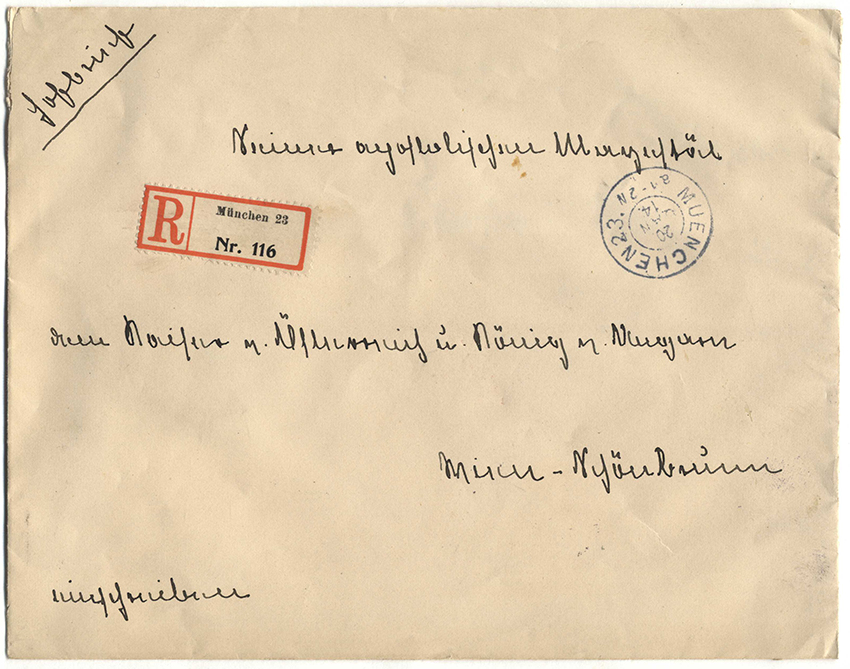 Hofbrief
Seiner apostolischen Majestät
R
München 23
Nr. 116
MUENCHEN 23.
20 JAN 14.
1-2 N
dem Kaiser v. Österreich u. König v. Ungarn
Wien - Schönbrunn
einschreiben